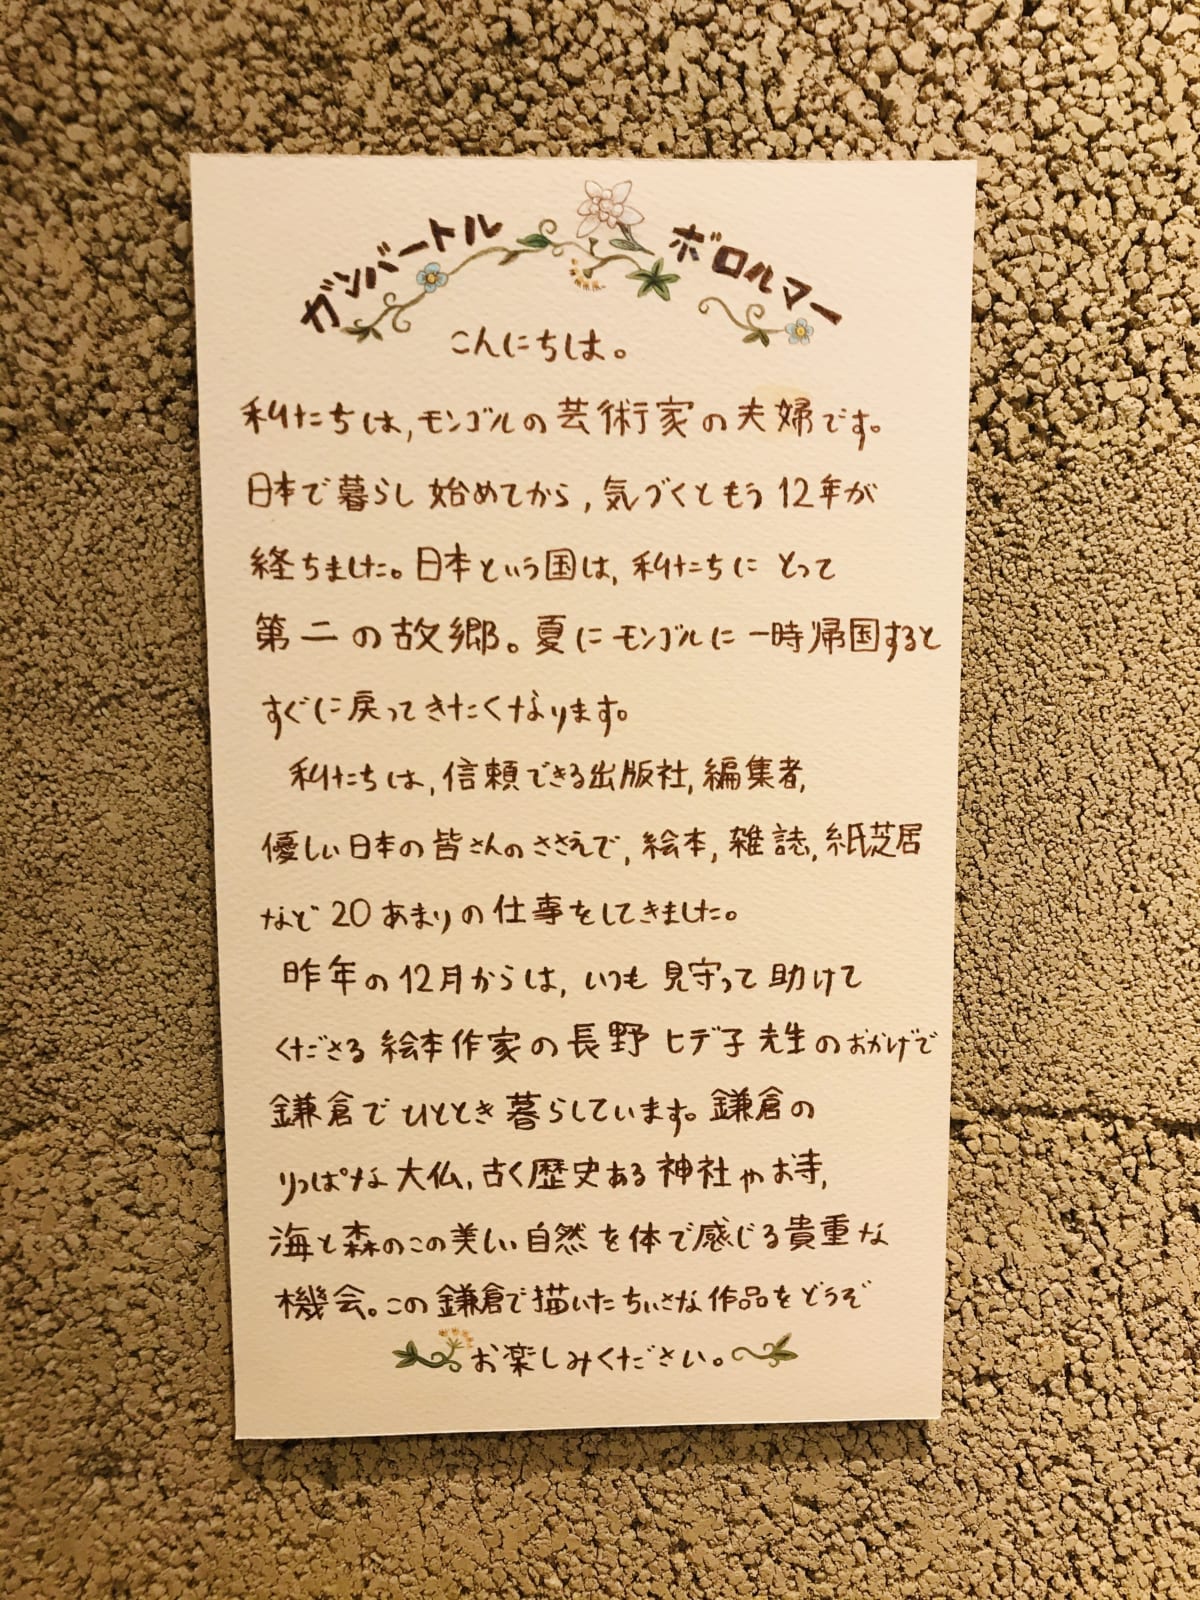 ガンバートル ボロルマー
こんにちは。
私たちは,モンゴルの芸術家の夫婦です。
日本で暮らし始めてから,気づくともう12年が
経ちました。日本という国は,私たちにとって
第二の故郷。夏にモンゴルに一時帰国すると
すぐに戻ってきたくなります。
私たちは,信頼できる出版社,編集者,
優しい日本の皆さんのささえで,絵本,雑誌,紙芝居
など20あまりの仕事をしてきました。
昨年の12月からは,いつも見守って助けて
くださる絵本作家の長野ヒデ子先生のおかげで
鎌倉でひととき暮らしています。鎌倉の
りっぱな大仏,古く歴史ある神社やお寺,
海と森のこの美しい自然を体で感じる貴重な
機会。この鎌倉で描いたちいさな作品をどうぞ
お楽しみください。